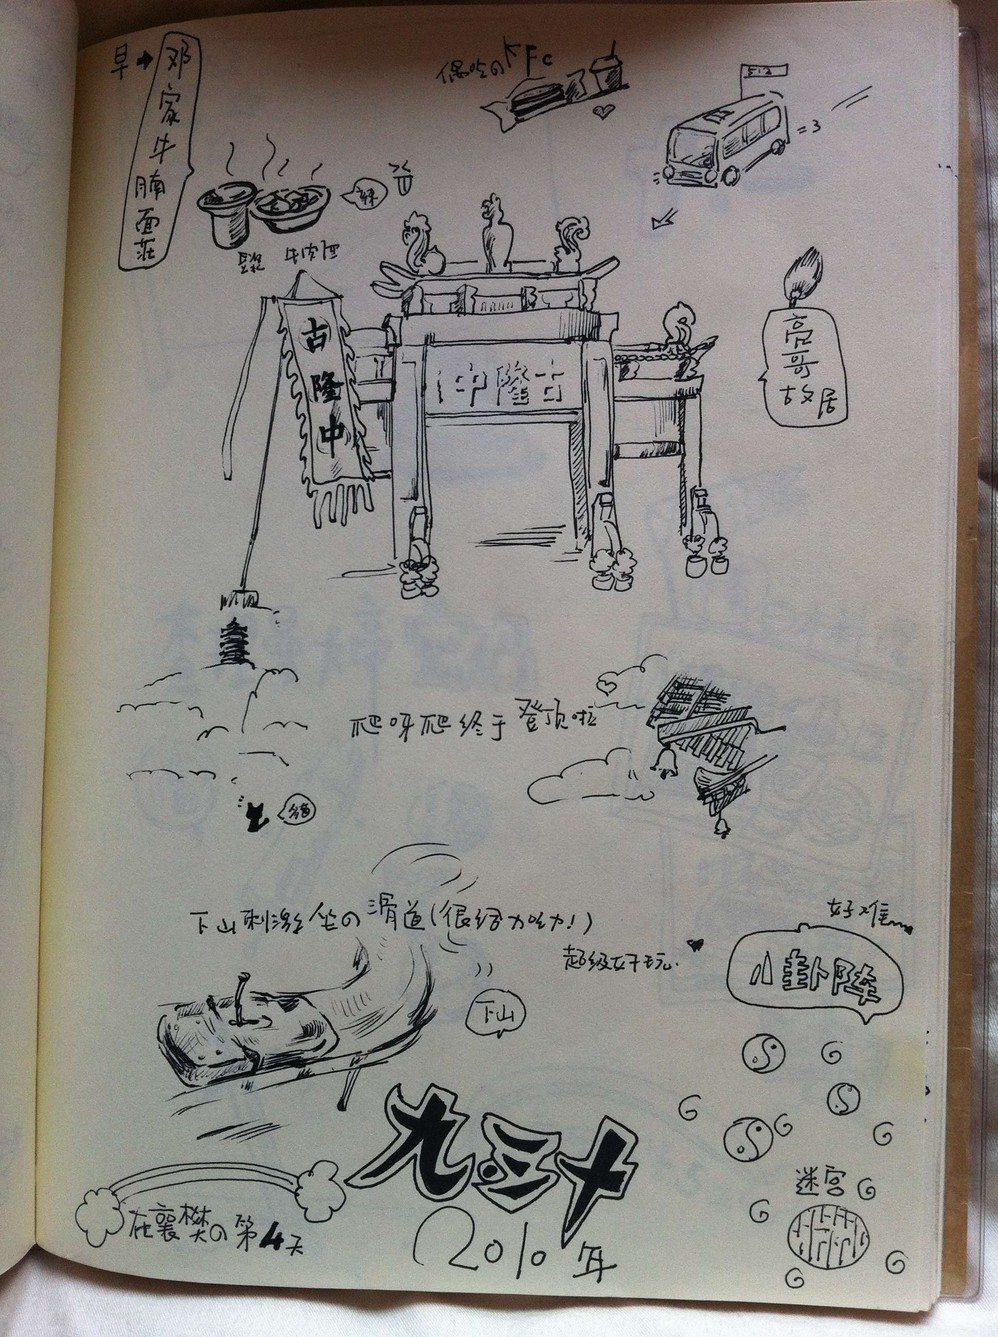 早→邓家牛腩面莊
偶吃のKFC
512
辣
牛肉面
古隆中
古隆中
亮哥故居
爬呀爬终于登顶啦
猫
下山刺激坐の滑道(很给力呦!)
超级好玩.
下山
好难
八卦阵
迷宫
九·三十
2010年
在襄樊の第4天